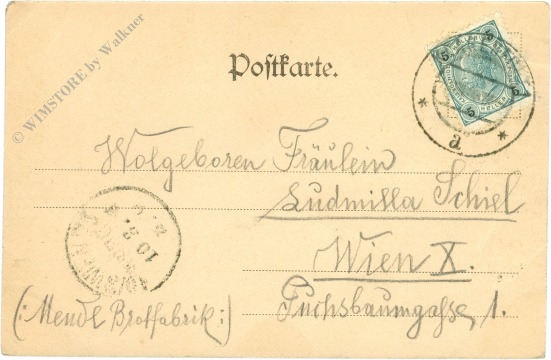 © WIMSTORE by Walkner
Postkarte.
5 5
5
a
Wolgeboren Fräulein
Ludmilla Schiel
Wien X.
Fuchsbaumgasse, 1.
10 3.
(: Mendl Brotfabrik :)